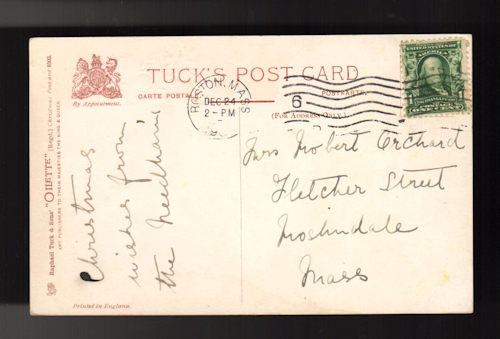 TUCK'S POST CARD
CARTE POSTALE
POSTKARTE.
(FOR ADDRESS ONLY.)
By Appointment.
Raphael Tuck & Sons' "OILETTE" [Regd.] Christmas Postcard
ART PUBLISHERS TO THEIR MAJESTIES THE KING & QUEEN.
BOSTON, MASS
DEC 24
2-PM
6
Christmas
wishes from
the Needhams
Mrs Robert Orchard
Fletcher Street
Roslindale
Mass
Printed in England.